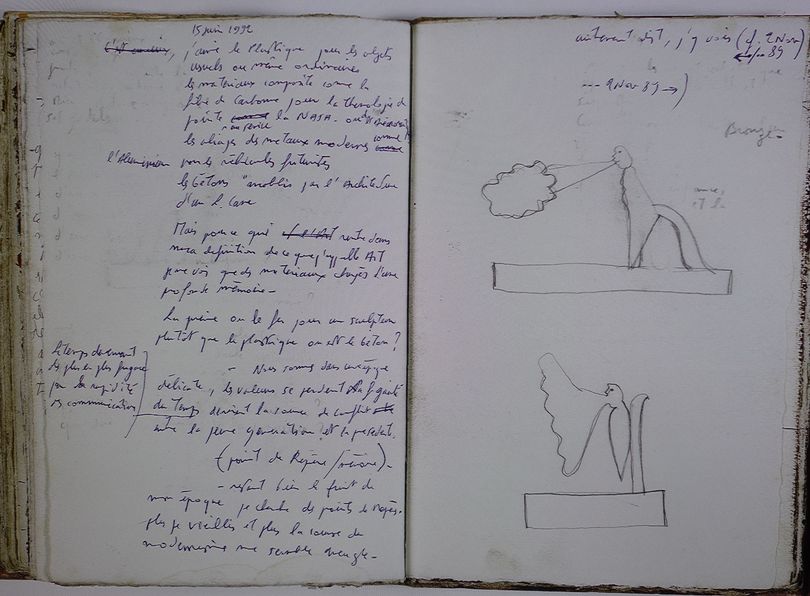 15 juin 1992
j'aime le Plastique pour les objets
usuels ou même ordinaires
les matériaux composite comme la
fibre de Carbone pour la
pointe la NASA. ou
les aliages des metaux modernes comme
l'Aluminium pour les véhicules futuristes
les bétons "anoblis par l'Architecture
d'un L. Cave
Mais pour ce qui rentre dans
ma définition de ce que j'appelle Art
je ne vois que des materiaux chargés d'une
profonde mémoire -
La pierre ou le fer pour un sculpteur
plutôt que le plastique ou et le beton ?
- Nous sommes dans une époque
délicate, les valeurs se perdent la fugacité
du Temps devient la source de conflit
entre la jeune génération et la précédente.
Le temps devenant
de plus en plus fugace
par la rapidité
des communications
(point de Repère / mémoire) -
- restant bien le fruit de
mon époque je cherche des points de repères.
plus je vieillis et plus la course du
modernisme me semble aveugle -
autrement dit, j'y vois (cf. 2 Nov
89
--- 2 Nov 89 → )
Bronze -
et la